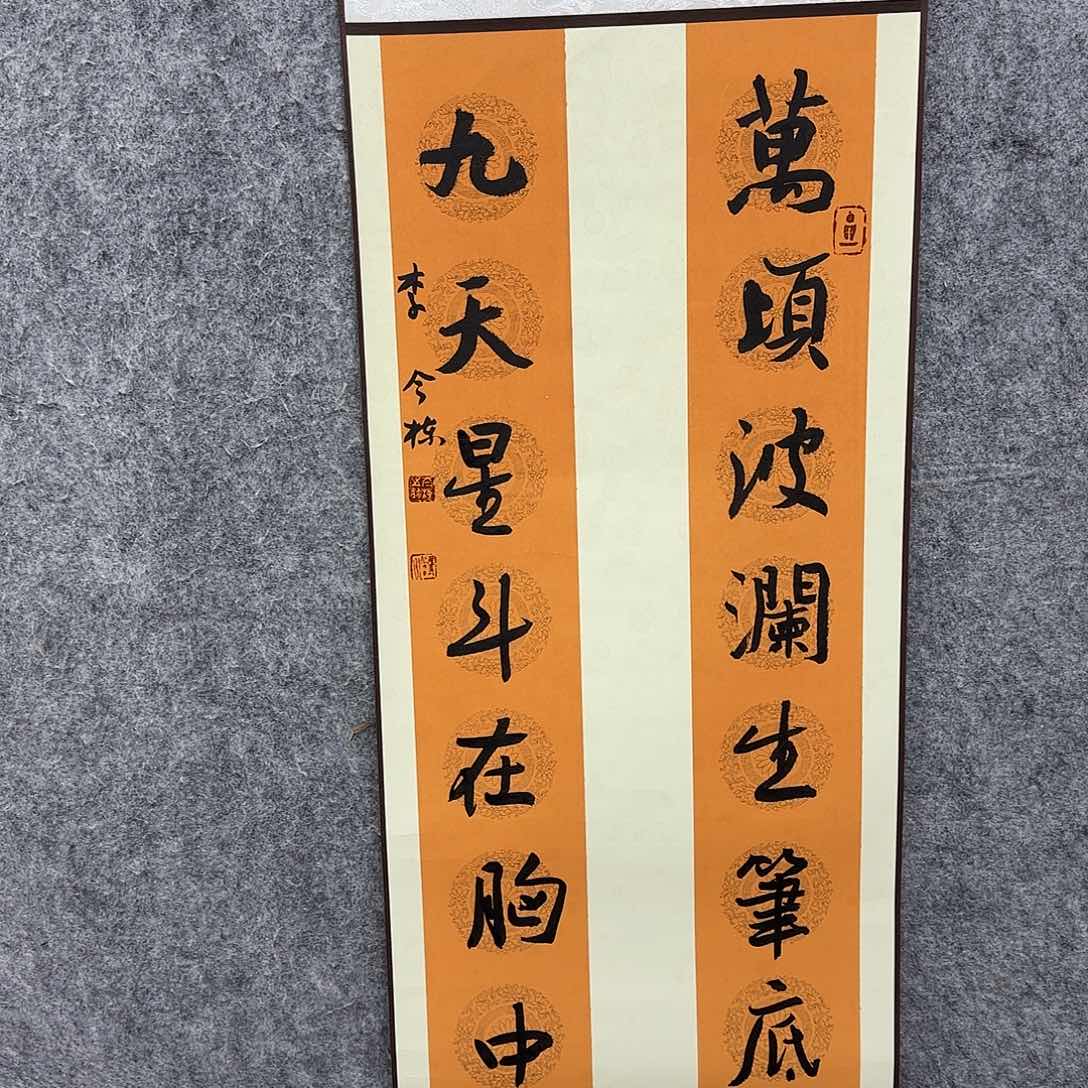 萬頃波瀾生筆底
九天星斗在胸中
李今棟